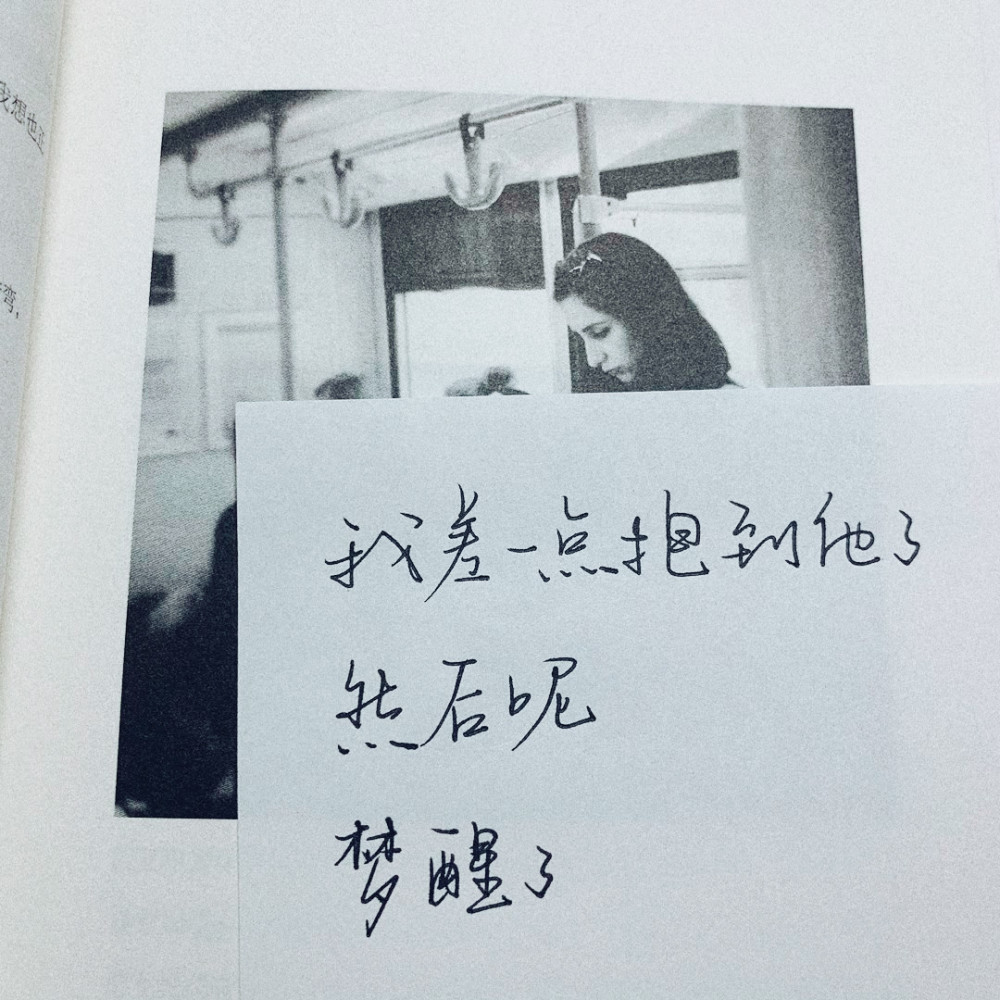 我想也
弯，
我差一点抱到他了
然后呢
梦醒了